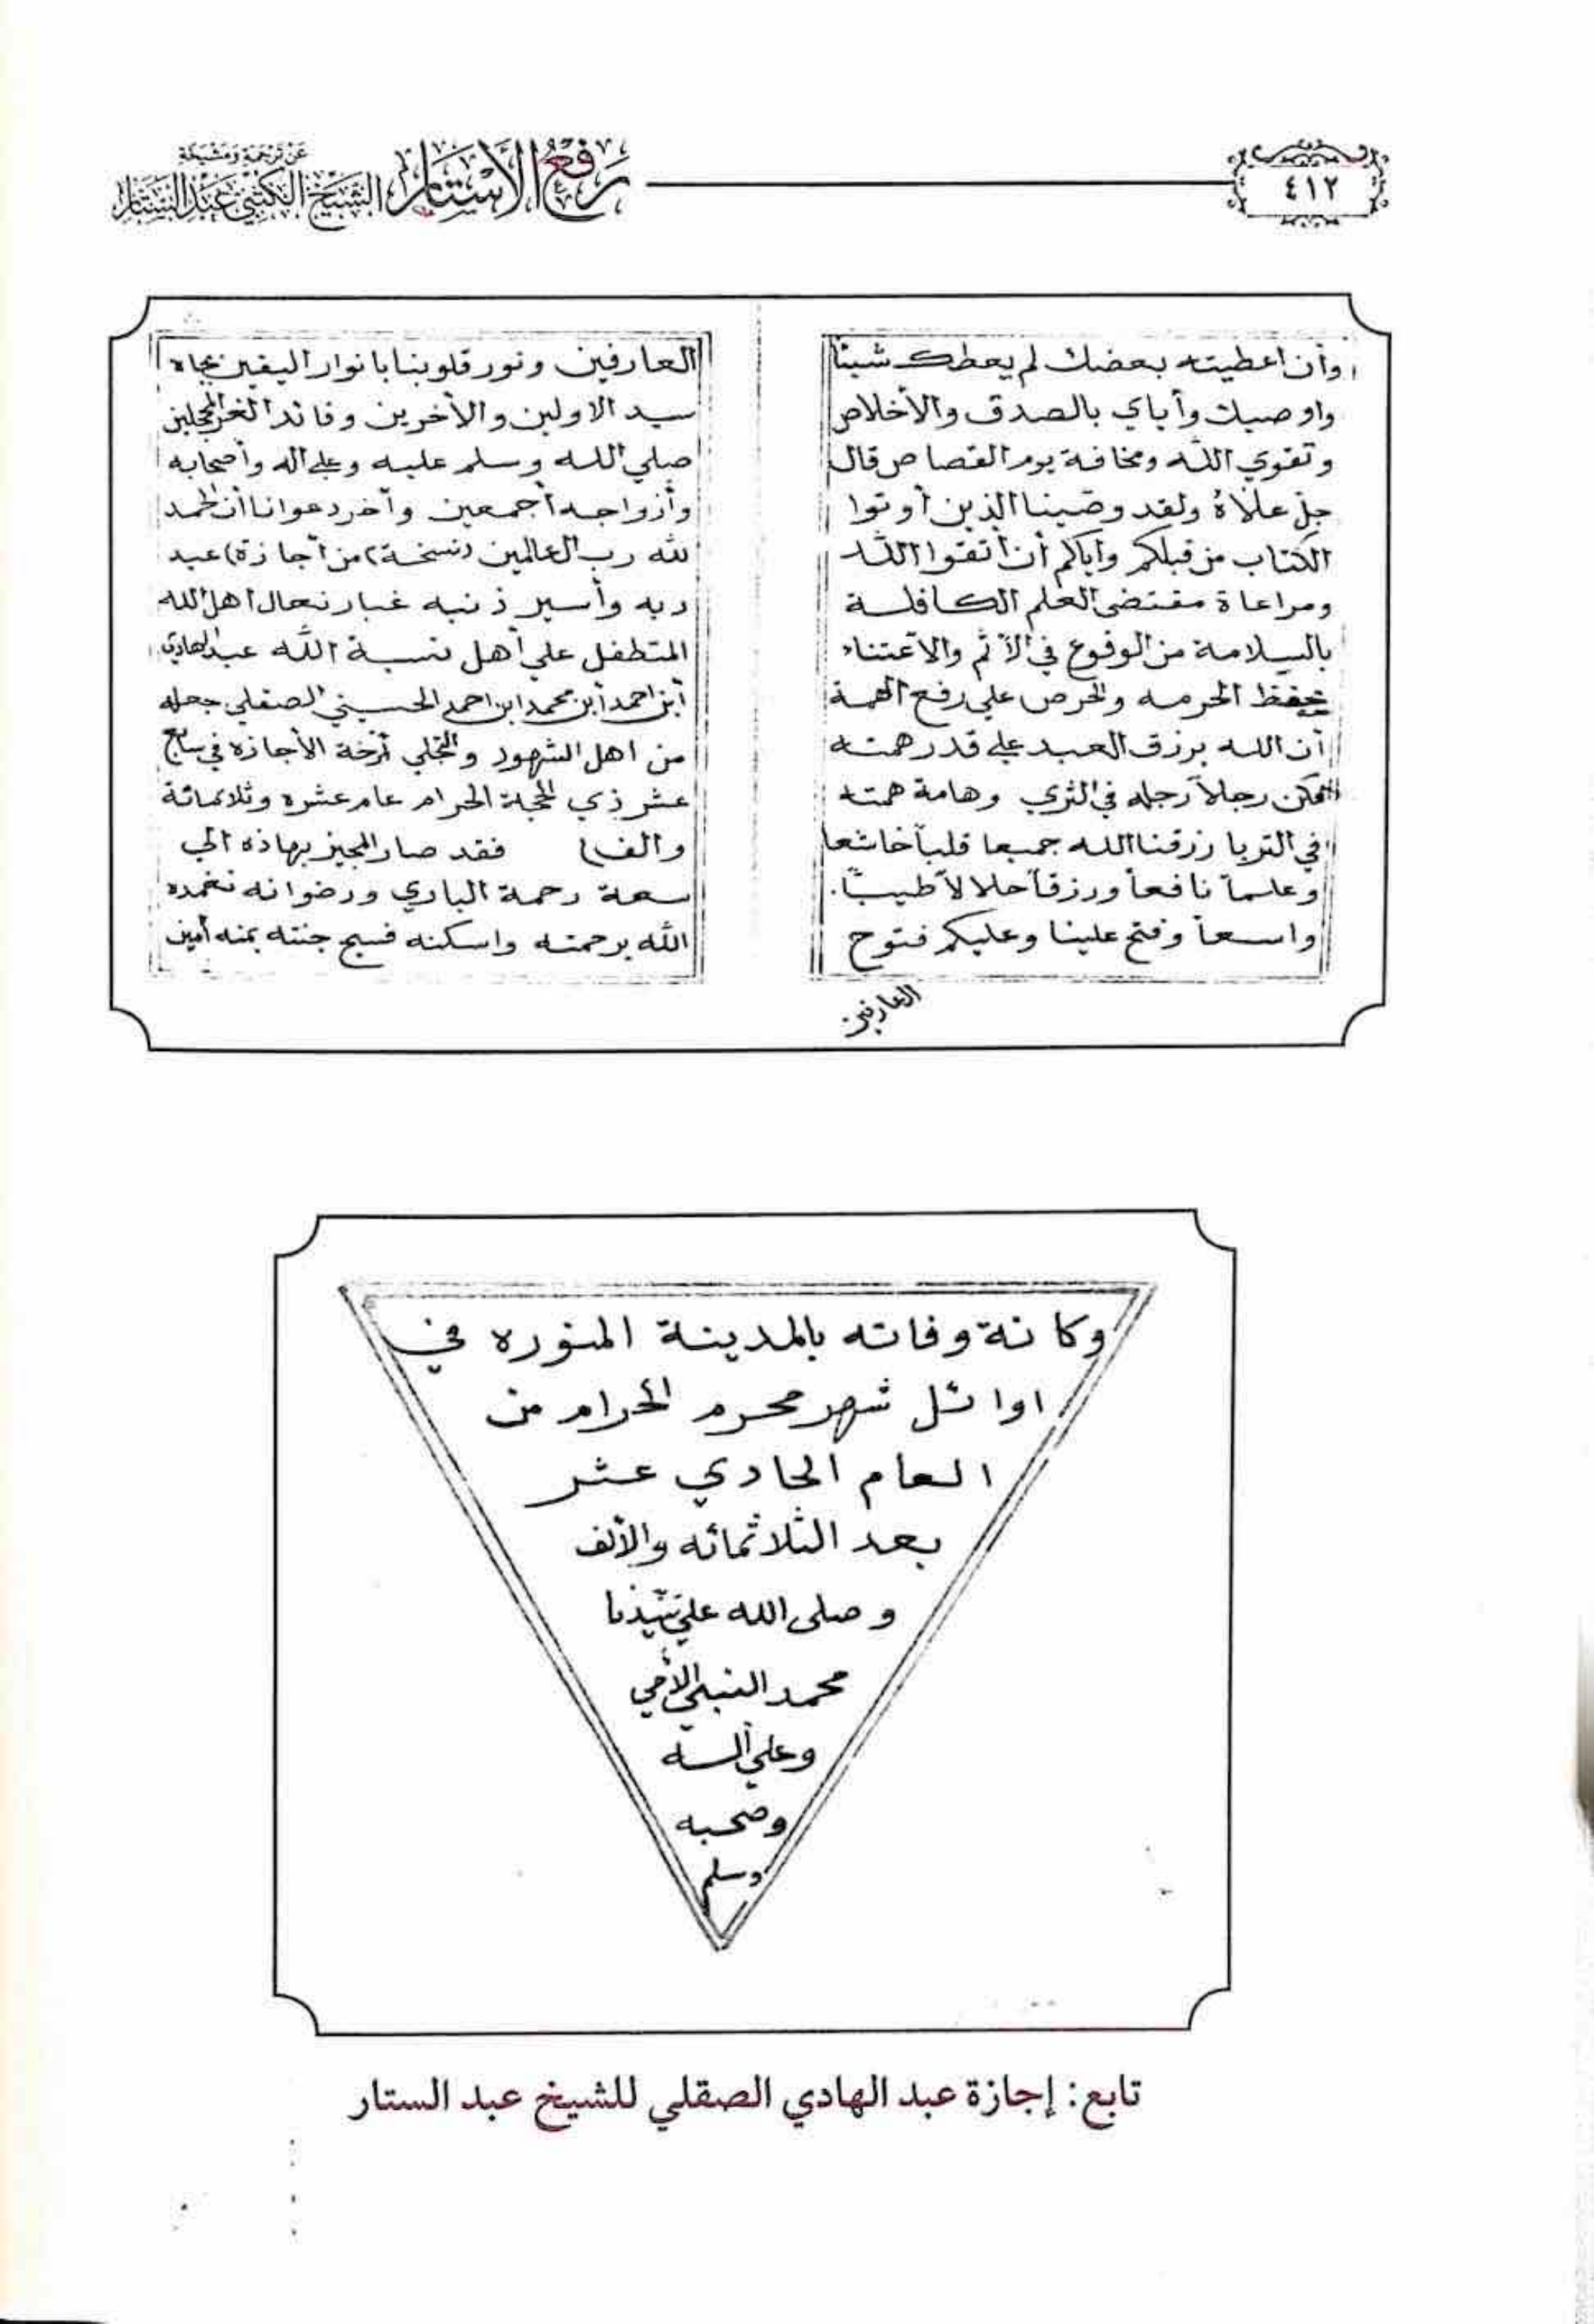 ٤١٢
رفع الأستار
عن ترجمة ومشيخة
الشيخ الكتبي عبد الستار
وأن اعطيته بعضك لم يعطك شيئا
واوصيك وأياي بالصدق والأخلاص
وتقوي الله ومخافة يوم القصاص قال
جل علاه ولقد وصينا الذين أوتوا
الكتاب من قبلكم وأياكم أن أتقوا الله
ومراعاة مقتضى العلم الكافلة
بالسلامة من الوقوع في الأثم والاعتناء
بحفظ الحرمه والحرص علي رفع الهمة
أن الله يرزق العبد علي قدر همته
فكن رجلاً رجله في الثري وهامة همته
في الثريا رزقنا الله جميعا قلباً خاشعا
وعلماً نافعاً ورزقاً حلالاً طيباً
واسعاً وفتح علينا وعليكم فتوح
العارفين
العارفين ونور قلوبنا بانوار اليقين بجاه
سيد الاولين والأخرين وقائد الغر المحجلين
صلي الله وسلم عليه وعلي اله وأصحابه
وأزواجه أجمعين وأخر دعوانا أن الحمد
لله رب العالمين (نسخة) من أجازة) عبد
ربه وأسير ذنبه غبار نعال اهل الله
المتطفل علي أهل نسبة الله عبد الهادي
أبن احمد أبن محمد ابن احمد الحسيني الصقلي جعله
من اهل الشهود والتجلي أرخة الأجازه في سابع
عشر ذي الحجة الحرام عام عشره وثلاثمائة
والف) فقد صار المجيز بهاذه الي
سعة رحمة الباري ورضوانه تغمده
الله برحمته واسكنه فسيح جنته بمنه أمين
وكانة وفاته بالمدينة المنوره في
اوائل شهر محرم الحرام من
العام الحادي عشر
بعد الثلاثمائه والألف
وصلى الله علي سيدنا
محمد النبي الأمي
وعلي أله
وصحبه
وسلم
تابع: إجازة عبد الهادي الصقلي للشيخ عبد الستار